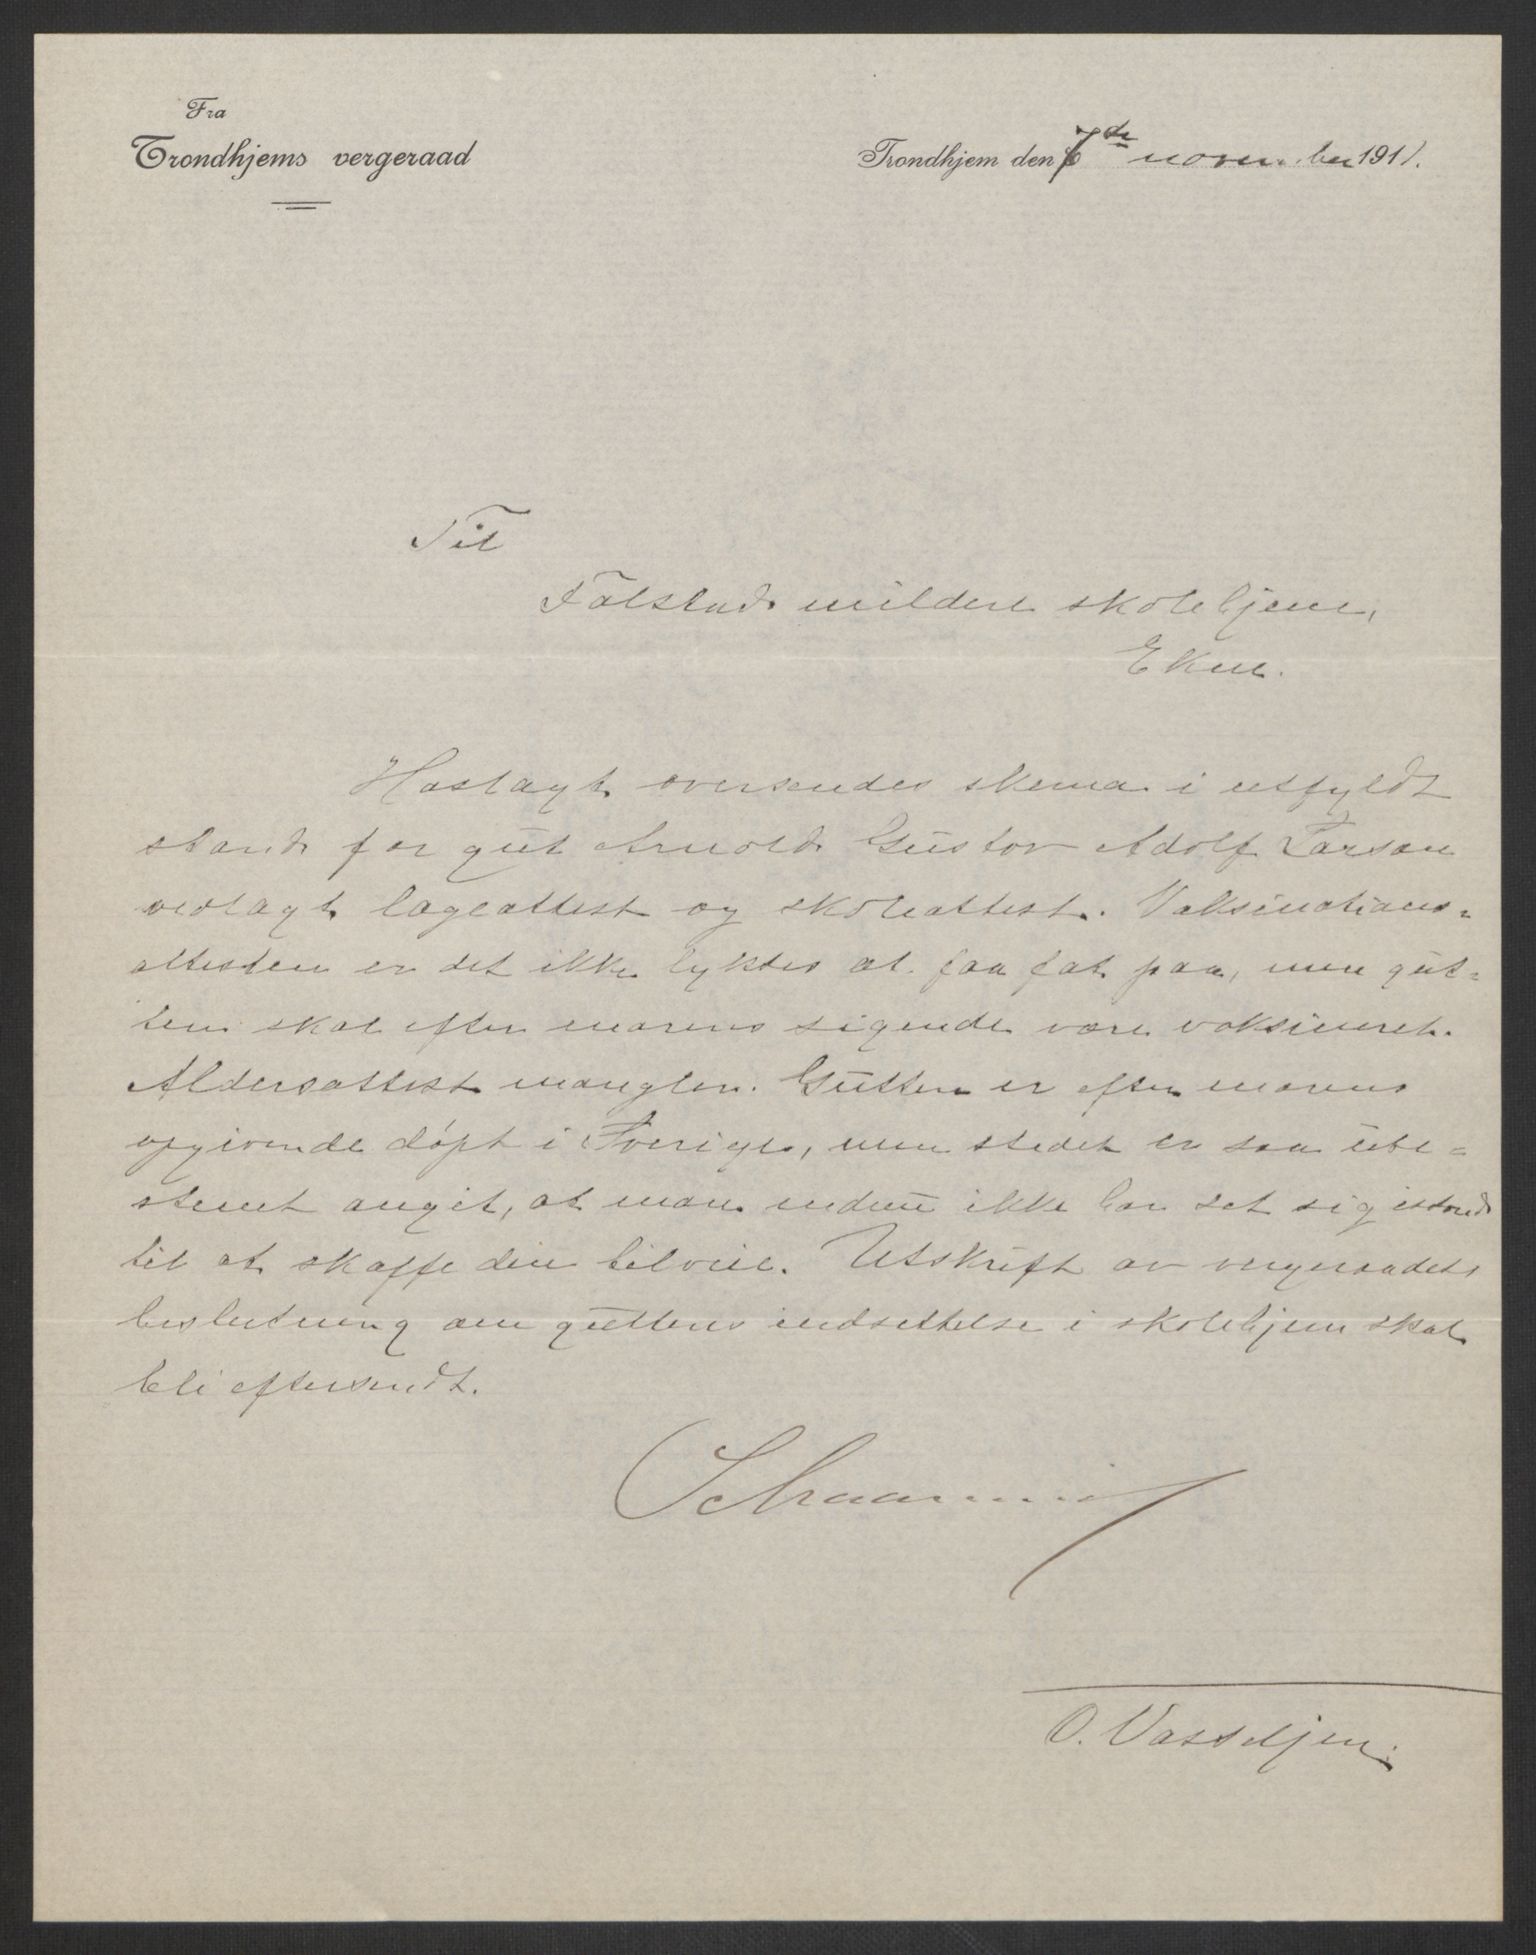 Fra
Trondhjems vergeraad
Trondhjem den 7de november 1911.
Til
Falstad mildere skolehjem,
Ekne.
Hoslagt oversendes skema i utfyldt
stand for gut Arnold Gustav Adolf Larsen
vedlagt lægeattest og skoleattest. Vaksinations-
attesten er det ikke lyktes at faa fat paa, men gut-
ten skal efter morens sigende være vaksineret.
Aldersattest mangler. Gutten er efter morens
opgivende døpt i Sverige, men stedet er saa ube-
stemt angit, at man endnu ikke har set sig istand
til at skaffe den tilveie. Utskrift av vergeraadets
beslutning om guttens indsettelse i skolehjem skal
bli eftersendt.
Schaanning
O. Vasseljen.